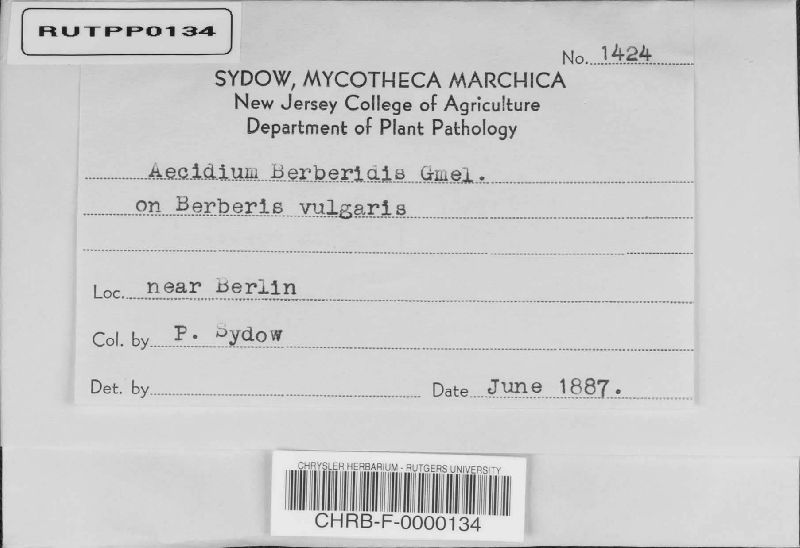 RUTPP0134
No. 1424
SYDOW, MYCOTHECA MARCHICA
New Jersey College of Agriculture
Department of Plant Pathology
Aecidium Berberidis Gmel.
on Berberis vulgaris
Loc. near Berlin
Col. by P. Sydow
Det. by
Date June 1887.
CHRYSLER HERBARIUM - RUTGERS UNIVERSITY
CHRB-F-0000134